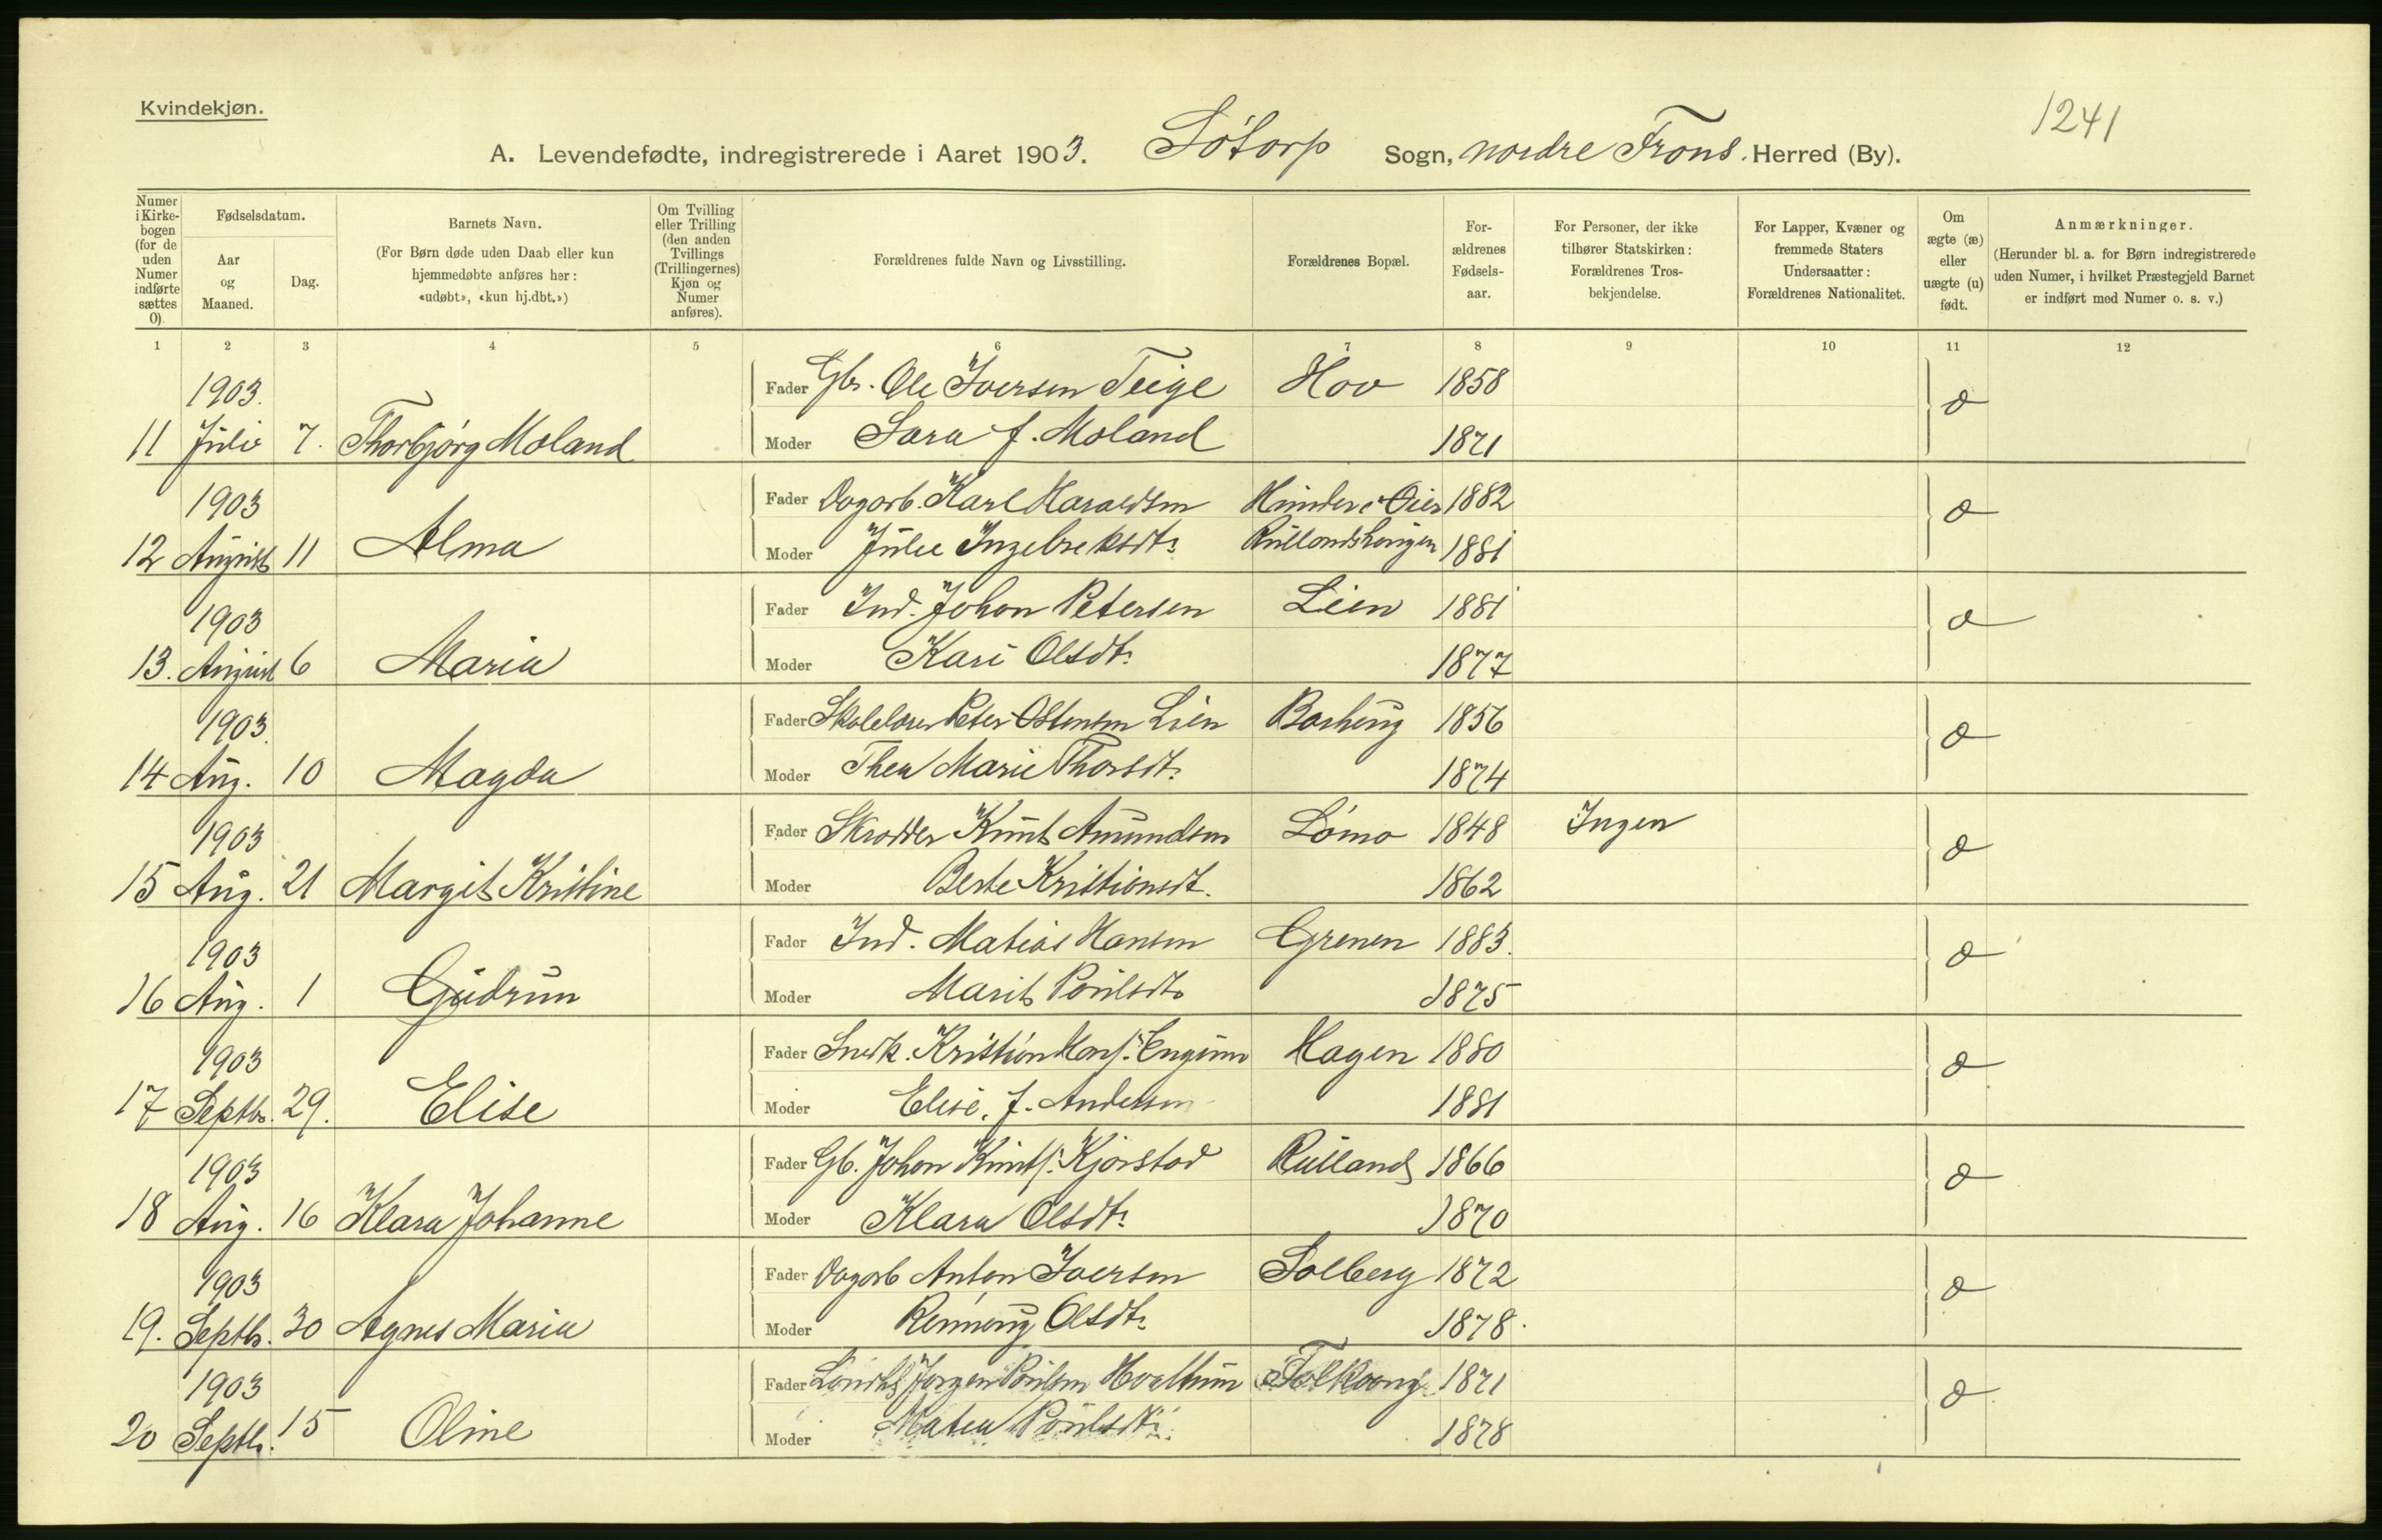 Kvindekjøn.
1241
A. Levendefødte, indregistrerede i Aaret 1903. Sötorp Sogn, nordre Frons. Herred (By).
Numer i Kirkebogen (for de uden Numer indførte sættes 0).
Fødselsdatum.
Aar og Maaned.
Dag.
Barnets Navn.
(For Børn døde uden Daab eller kun hjemmedøbte anføres her: «udøbt», «kun hj.dbt.»)
Om Tvilling eller Trilling (den anden Tvillings (Trillingernes) Kjøn og Numer anføres).
Forældrenes fulde Navn og Livsstilling.
Forældrenes Bopæl.
Forældrenes Fødselsaar.
For Personer, der ikke tilhører Statskirken: Forældrenes Trosbekjendelse.
For Lapper, Kvæner og fremmede Staters Undersaatter: Forældrenes Nationalitet.
Om ægte (æ) eller uægte (u) født.
Anmærkninger.
(Herunder bl. a. for Børn indregistrerede uden Numer, i hvilket Præstegjeld Barnet er indført med Numer o. s. v.)
1 2 3 4 5 6 7 8 9 10 11 12
1903. Fader Gbr. Ole Iversen Teige Hov 1858 æ
11 Juli 7. Thorbjørg Moland Moder Sara f. Moland 1871
1903 Fader Dagarb. Karl Haraldsen Hunder i Öier 1882 æ
12 August 11 Alma Moder Julie Ingebrektsdtr Rullandshaugen 1881
1903 Fader Ind. Johan Petersen Lien 1881 æ
13. August 6 Maria Moder Kari Olsdtr 1877
1903. Fader Skolelærer Peter Ostensen Lien Barhaug 1856 æ
14 Aug. 10 Magda Moder Thea Marie Thorsdt. 1874
1903 Fader Skrædder Knut Amundsen Lömo 1848 Ingen æ
15 Aug. 21 Margit Kristine Moder Berte Kristiansdt. 1862
1903 Fader Ind. Matias Hansen Grenen 1883. æ
16 Aug. 1 Gudrun Moder Marit Paulsdtr 1875
1903 Fader Snedk. Kristian Hansf. Engum Hagen 1880 æ
17 Septbr. 29. Elise Moder Elise. f. Andersen 1881
1903 Fader Gb. Johan Knutf. Kjørstad Rulland 1866 æ
18 Aug. 16 Klara Johanne Moder Klara Olsdtr 1870
1903 Fader Dagarb Anton Iversen Solberg 1872 æ
19. Septbr. 30 Agnes Maria Moder Rönnaug Olsdtr 1878.
1903 Fader Landh. Jørgen Paulsen Hvattum Folkvang 1871 æ
20 Septbr. 15 Oline Moder Matea Paulsdtr. 1878